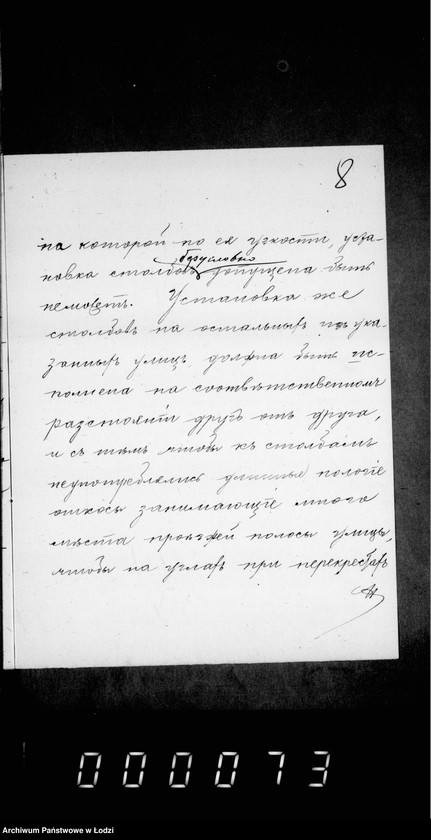 8
на которой по ея узкости, уста-
безусловно
новка столбовъ допущена быть
неможетъ. Установка же
столбовъ на остальныхъ ука-
занныхъ улицъ должна быть ис-
полнена на соотвѣтственномъ
разстояніи другъ отъ друга,
и съ тѣмъ чтобы къ столбамъ
неупотреблялись длинные пологіе
откосы занимающіе много
мѣста проѣзжей полосы улицы,
чтобы на углахъ при перекресткахъ
0000073
Archiwum Państwowe w Łodzi